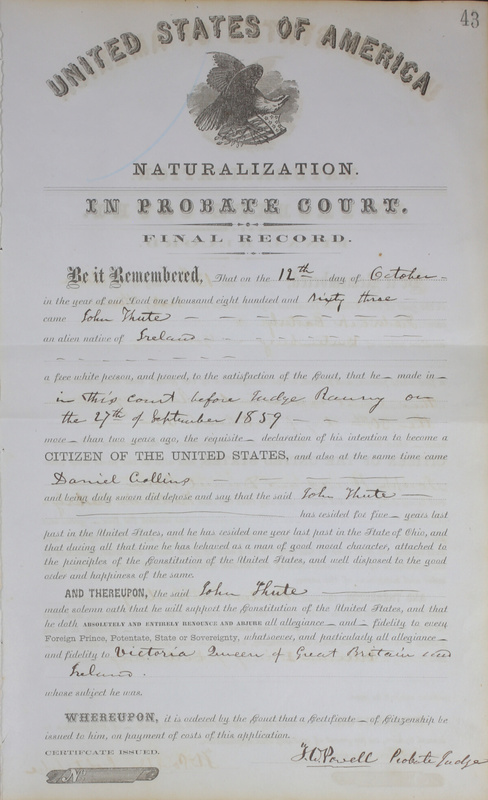 43
UNITED STATES OF AMERICA
NATURALIZATION.
IN PROBATE COURT.
FINAL RECORD.
Be it Remembered, That on the 12th day of October
in the year of our Lord one thousand eight hundred and sixty three
came John Thute
an alien native of Ireland
a free white person, and proved, to the satisfaction of the Court, that he made in
in this court before Judge Ranny on
the 27th of September 1859
more than two years ago, the requisite declaration of his intention to become a
CITIZEN OF THE UNITED STATES, and also at the same time came
Daniel Collins
and being duly sworn did depose and say that the said John Thute
has resided for five years last
past in the United States, and he has resided one year last past in the State of Ohio, and
that during all that time he has behaved as a man of good moral character, attached to
the principles of the Constitution of the United States, and well disposed to the good
order and happiness of the same.
AND THEREUPON, the said John Thute
made solemn oath that he will support the Constitution of the United States, and that
he doth ABSOLUTELY AND ENTIRELY RENOUNCE AND ABJURE all allegiance and fidelity to every
Foreign Prince, Potentate, State or Sovereignty, whatsoever, and particularly all allegiance
and fidelity to Victoria Queen of Great Britain and
Ireland.
whose subject he was.
WHEREUPON, it is ordered by the Court that a Certificate of Citizenship be
issued to him, on payment of costs of this application.
CERTIFCATE ISSUED.
Powell Probate Judge